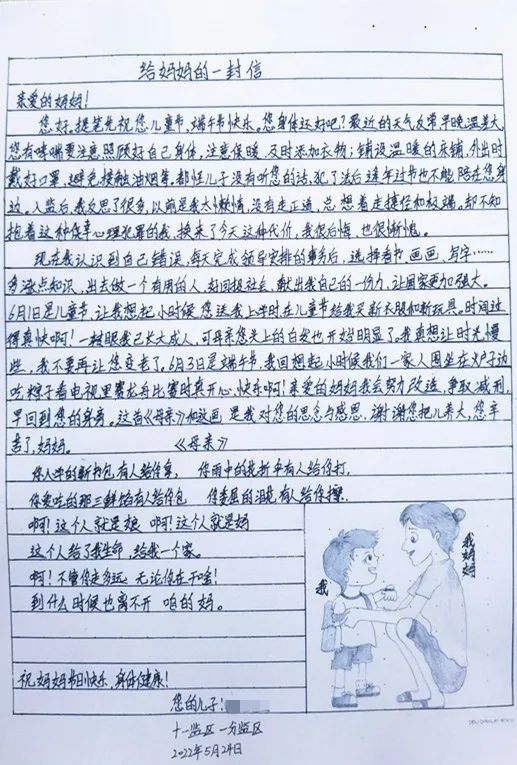 给妈妈的一封信
亲爱的妈妈！
您好。提笔先祝您儿童节，端午节快乐。您身体还好吧？最近的天气反常早晚温差大，
您有哮喘要注意照顾好自己身体，注意保暖 及时添加衣物；铺设温暖的床铺，外出时
戴好口罩，避免接触油烟等，都怪儿子没有听您的话，犯了法后连年过节也不能陪在您身
边。入监后，我反思了很多，以前是我太懒惰，没有走正道，总想着走捷径和极端，却不知
抱着这种侥幸心理犯罪的我，换来了今天这种代价，我很后悔也很惭愧。
现在我认识到自己错误，每天完成领导安排的事务后，选择看书 画画，写字……
多涨点知识，出去做一个有用的人，好回报社会，献出我自己的一份力，让国家更加强大。
6月1日是儿童节，让我想起小时候您送我上学时在儿童节给我买新衣服和新玩具。时间过
得真快啊！一转眼我已长大成人，可母亲您头上的白发也开始明显了。我真想让时光慢
些，我不要再让您变老了。6月3日是端午节，我回想起小时候我们一家人围坐在火炉子边
吃粽子看电视里赛龙舟比赛时真开心，快乐啊！亲爱的妈妈我会努力改造，争取减刑，
早回到您的身旁。这首《母亲》和这画 是我对您的思念与感恩，谢谢您把儿养大，您辛
苦了，妈妈。 《母亲》
你入学的新书包有人给你拿， 你雨中的花折伞有人给你打，
你爱吃的那三鲜馅有人给你包 你委屈的泪花有人给你擦，
啊！这个人就是娘 啊！这个人就是妈
这个人给了我生命，给我一个家。
啊！不管你走多远 无论你在干啥！
到什么时候也离不开 咱的妈。
我妈妈
我
祝妈妈节日快乐，身体健康！
您的儿子：
十一监区 一分监区
2022年5月24日